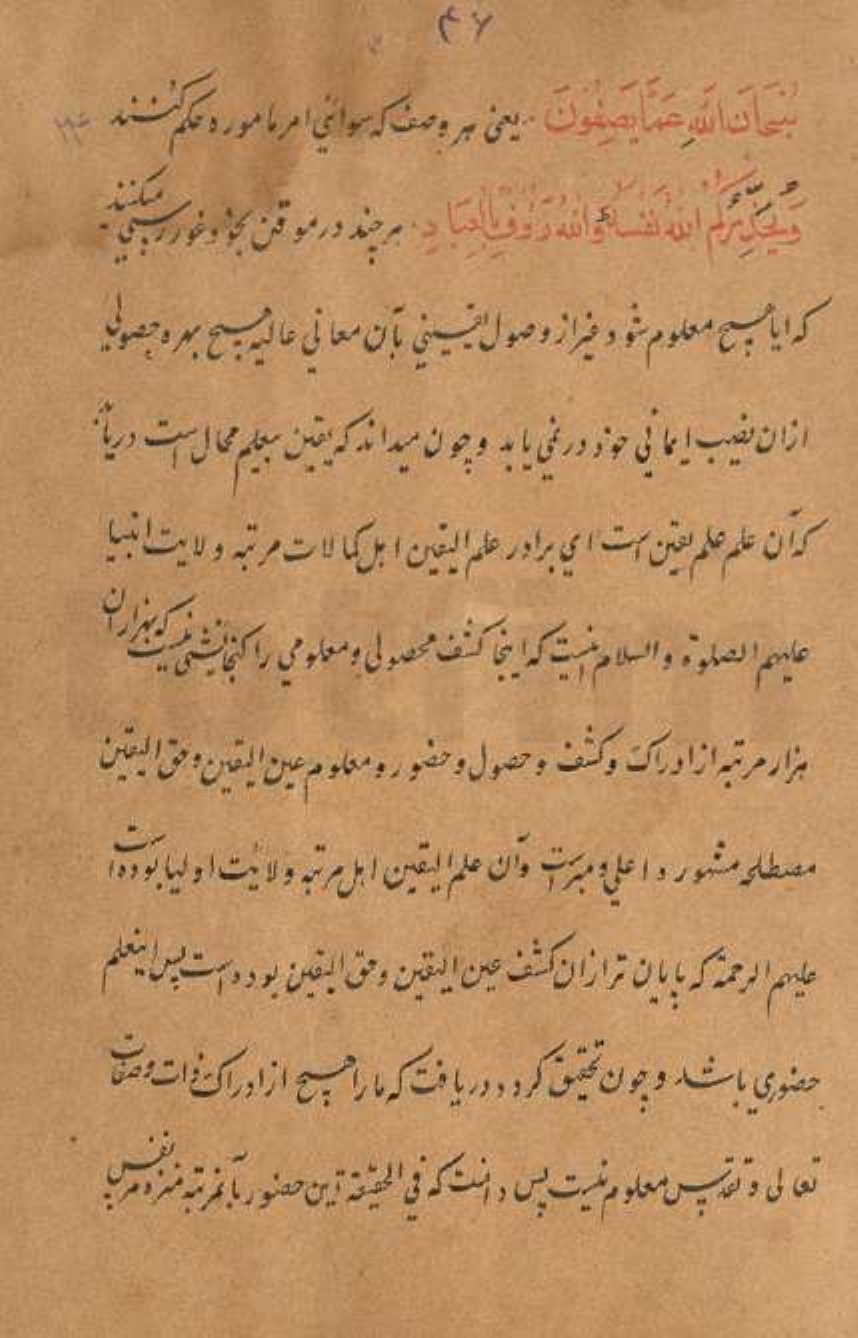 ۴۶
سُبْحَانَ اللَّهِ عَمَّا يَصِفُونَ یعنی هر وصف که سوائی امر ما موره حکم کنند
وَيُحَذِّرُكُمُ اللَّهُ نَفْسَهُ وَاللَّهُ رَؤُوفٌ بِالْعِبَادِ هر چند در موقن بخود غور رسی میکنند
که ایا هیچ معلوم شود غیر از وصول یقینی بآن معانی عالیه هیچ بهره حصولی
ازان نصیب ایمانی خود در نمی یابد و چون میداند که یقین بیعلم محال است دریابد
که آن علم علم یقین است ای برادر علم الیقین اهل کمالات مرتبه ولایت انبیا
علیهم الصلوة والسلام اینست که اینجا کشف محصولی و معلومی را گنجایشی نیست که هزاران
هزار مرتبه از ادراک و کشف و حصول و حضور و معلوم عین الیقین و حق الیقین
مصطلحه مشهور و اعلی و مبراست وآن علم الیقین اهل مرتبه ولایت اولیا بوده است
علیهم الرحمة که پایان تر ازان کشف عین الیقین وحق الیقین بوده است پس اینعلم
حضوری باشد و چون تحقیق کرد و دریافت که ما را هیچ از ادراک ذات وصفات
تعالی وتقدس معلوم نیست پس دانست که في الحقیقة این حضور بآنمرتبه منزه مر نفس